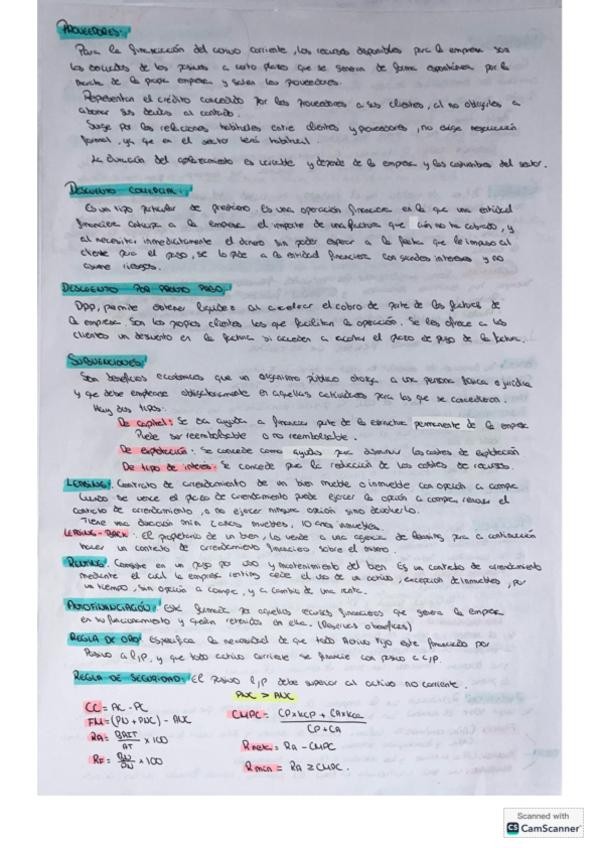 PROVEEDORES:
Para la financiación del activo corriente, los recursos disponibles para la empresa son
los de pasivos a corto plazo que se generan de forma espontánea por la
marcha de la propia empresa y serían los proveedores.
Representan el crédito concedido por los proveedores a sus clientes, al no obligarles a
abonar sus deudas al contado.
Surge por las relaciones habituales entre clientes y proveedores, no exige negociación
formal, ya que en el sector será habitual.
La duración del aplazamiento es variable y depende de la empresa y las costumbres del sector.
DESCUENTO COMERCIAL:
Es un tipo particular de préstamo. Es una operación financiera en la que una entidad
financiera anticipa a la empresa el importe de una factura que aún no ha cobrado, y
al necesitar inmediatamente el dinero sin poder esperar a la fecha que le impuso al
cliente para el pago, se lo pide a la entidad financiera con sendos intereses y no
asume riesgos.
DESCUENTO POR PRONTO PAGO:
DPP, permite obtener liquidez al acelerar el cobro de parte de las facturas de
la empresa. Son los propios clientes los que facilitan la operación. Se les ofrece a los
clientes un descuento en la factura si acceden a acortar el plazo de pago de la factura.
SUBVENCIONES:
Son beneficios económicos que un organismo público otorga a una persona física o jurídica
y que debe emplearse obligatoriamente en aquellas actividades para las que se concedieron.
Hay dos tipos:
De capital: Se da ayuda a financiar parte de la estructura permanente de la empresa
Puede ser reembolsable o no reembolsable.
De explotación: Se concede como ayudas para disminuir los costes de explotación
De tipo de interés: Se concede para la reducción de los costes de recursos.
LEASING: Contrato de arrendamiento de un bien mueble o inmueble con opción a compra
Cuando se vence el plazo de arrendamiento puede ejercer la opción a compra, renovar el
contrato de arrendamiento, o no ejercer ninguna opción sino devolverlo.
Tiene una duración mín 2 años muebles, 10 años inmuebles.
LEASING-BACK: El propietario de un bien, lo vende a una agencia de leasing para a continuación
hacer un contrato de arrendamiento financiero sobre el mismo.
RENTING: Consiste en un pago por uso y mantenimiento del bien. Es un contrato de arrendamiento
mediante el cual la empresa renting cede el uso de un activo, excepción de inmuebles, por
un tiempo, sin opción a compra, y a cambio de una renta.
AUTOFINANCIACIÓN: Está formada por aquellos recursos financieros que genera la empresa
en su funcionamiento y quedan retenidos en ella. (Reservas o beneficios)
REGLA DE ORO: Especifica la necesidad de que todo Activo Fijo esté financiado por
Pasivo a l/p, y que todo activo corriente se financie con pasivo a c/p.
REGLA DE SEGURIDAD: El pasivo l/p debe superior al activo no corriente.
PNC > ANC
CC = AC - PC
FM = (PN + PNC) - ANC
RA = BAIT / AT x 100
RF = BN / PN x 100
CMPC = CP x KCP + CA x KCA / CP + CA
Rneta = RA - CMPC
Rmin = RA ≥ CMPC.
Scanned with
CS CamScanner